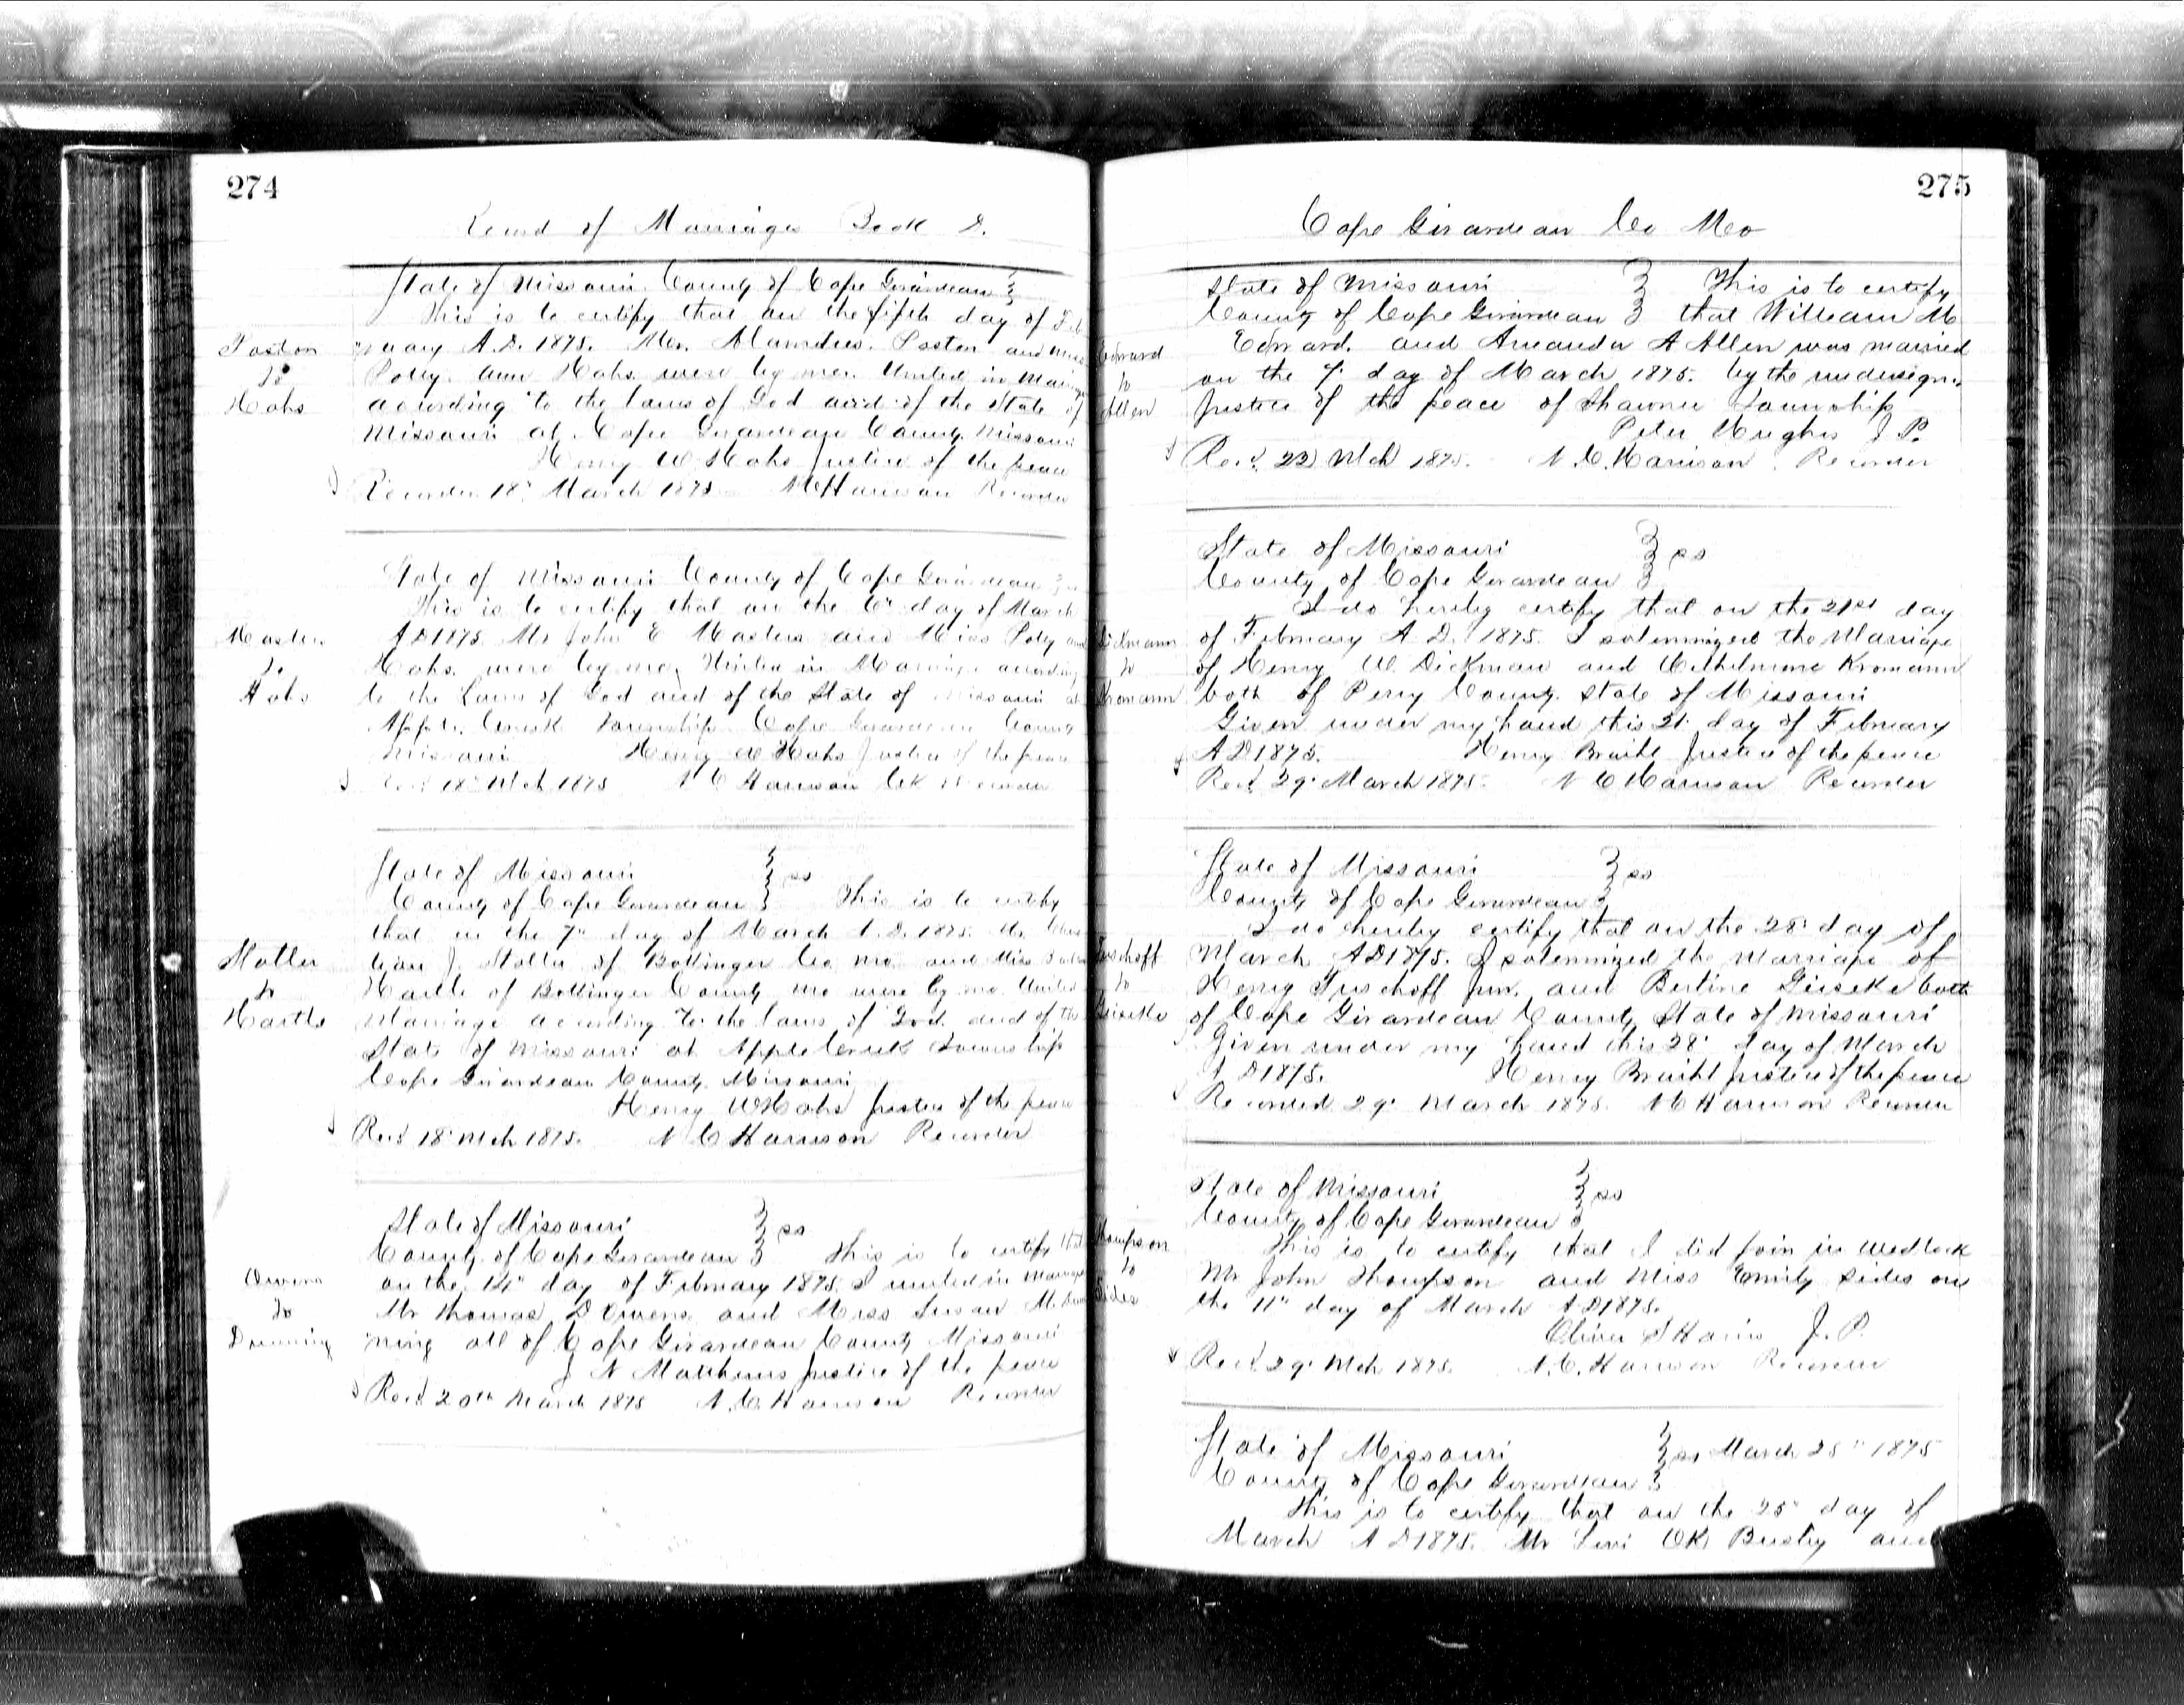 274
Record of Marriages Book D.
State of Missouri County of Cape Girardeau
This is to certify that on the fifth day of Feb
Poston
to
Hahs
ruary A.D. 1875. Mr. Poston and Miss
Polly Ann Hahs were by me United in Marriage
according to the laws of God and of the State of
Missouri at Cape Girardeau County Missouri
Henry W Hahs Justice of the peace
Recorded 18" March 1875 N C Harrison Recorder
State of Missouri County of Cape Girardeau
This is to certify that on the 6" day of March
Masters
to
Hahs
A D 1875 Mr John E Masters and Miss Polly
Hahs were by me United in Marriage according
to the Laws of God and of the State of Missouri at
Apple Creek Township Cape Girardeau County
Missouri Henry W Hahs Justice of the peace
Recd 18" Mch 1875 N C Harrison Clk Recorder
State of Missouri
County of Cape Girardeau } ss This is to certify
that on the 7" day of March A.D. 1875. Mr.
Statler
to
Hartle
tian J. Statler of Bollinger Co Mo and Miss
Hartle of Bollinger County Mo were by me United
Marriage according to the laws of God and of the
State of Missouri at Apple Creek Township
Cape Girardeau County Missouri
Henry W Hahs Justice of the peace
Recd 18" Mch 1875. N C Harrison Recorder
State of Missouri
County of Cape Girardeau } ss This is to certify that
Owens
to
Drunning
on the 14" day of February 1875 I united in Marriage
Mr Thomas D Owens and Miss Susan M
ning all of Cape Girardeau County Missouri
J N Matthews Justice of the peace
Recd 20th March 1875 N. C. Harrison Recorder
275
Cape Girardeau Co Mo
State of Missouri } This is to certify
County of Cape Girardeau } that William M
Edward
to
Allen
Edward. and Amanda A Allen was married
on the 7" day of March 1875. by the undersigned
Justice of the peace of Shawnee Township
Peter Hughes J P.
Recd. 22 Mch 1875. N. C. Harrison Recorder
State of Missouri
County of Cape Girardeau } ss
I do hereby certify that on the 21st day
Dickmann
to
Kromann
of February A. D. 1875. I solemnized the Marriage
of Henry W. Dickman and Wilhelmine Kromann
both of Perry County. State of Missouri
Given under my hand this 21" day of February
A D 1875. Henry Justice of the peace
Recd. 29" March 1875. N C Harrison Recorder
State of Missouri
County of Cape Girardeau } ss
I do hereby certify that on the 28" day of
March A D 1875. I solemnized the Marriage of
Henry Tuschoff Jun. and Bertine Gieseke both
of Cape Girardeau County State of Missouri
Given under my hand this 28" day of March
A D 1875. Henry Justice of the peace
Recorded 29" March 1875. N C Harrison Recorder
State of Missouri
County of Cape Girardeau } ss
Thompson
to
Sides
This is to certify that I did join in wedlock
Mr John Thompson and Miss Emily Sides on
the 11" day of March A D 1875.
Oliver S Harris J. P.
Recd 29" Mch 1875. N. C. Harrison Recorder
State of Missouri
County of Cape Girardeau } ss March 25" 1875
This is to certify that on the 25" day of
March A D 1875. Mr Levi and